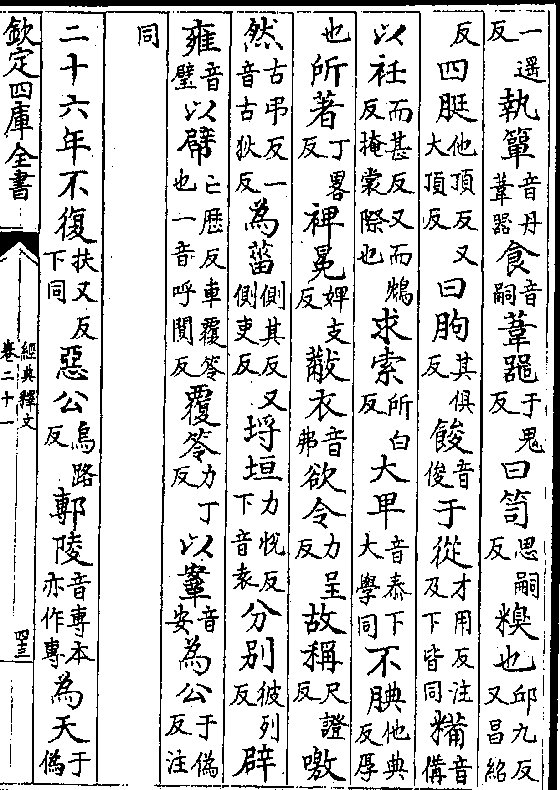 一遥反執簞音丹葦器食音嗣葦噐于鬼反曰笥思嗣反糗也邱九反又昌紹
反四脡他頂反又大頂反曰朐其俱反餕音俊于從才用反注及下皆同糒音備
以衽而甚反又而鴆反掩裳際也求索所白反大甲音泰下大學同不腆他典反厚
也所著丁畧反裨冕婢支反黻衣音弗欲令力呈反故稱尺證反噭
然古弔反一音古狄反為菑側其反又側吏反埒垣力恱反下音袁分別彼列反辟
雍音璧以幦亡歴反車覆笭也一音呼閴反覆笭力丁反以鞌音安為公于偽反注
同
二十六年不復扶又反下同惡公烏路反鄟陵音專本亦作專為天于偽
欽定四庫全書
經典釋文
卷二十一
四三